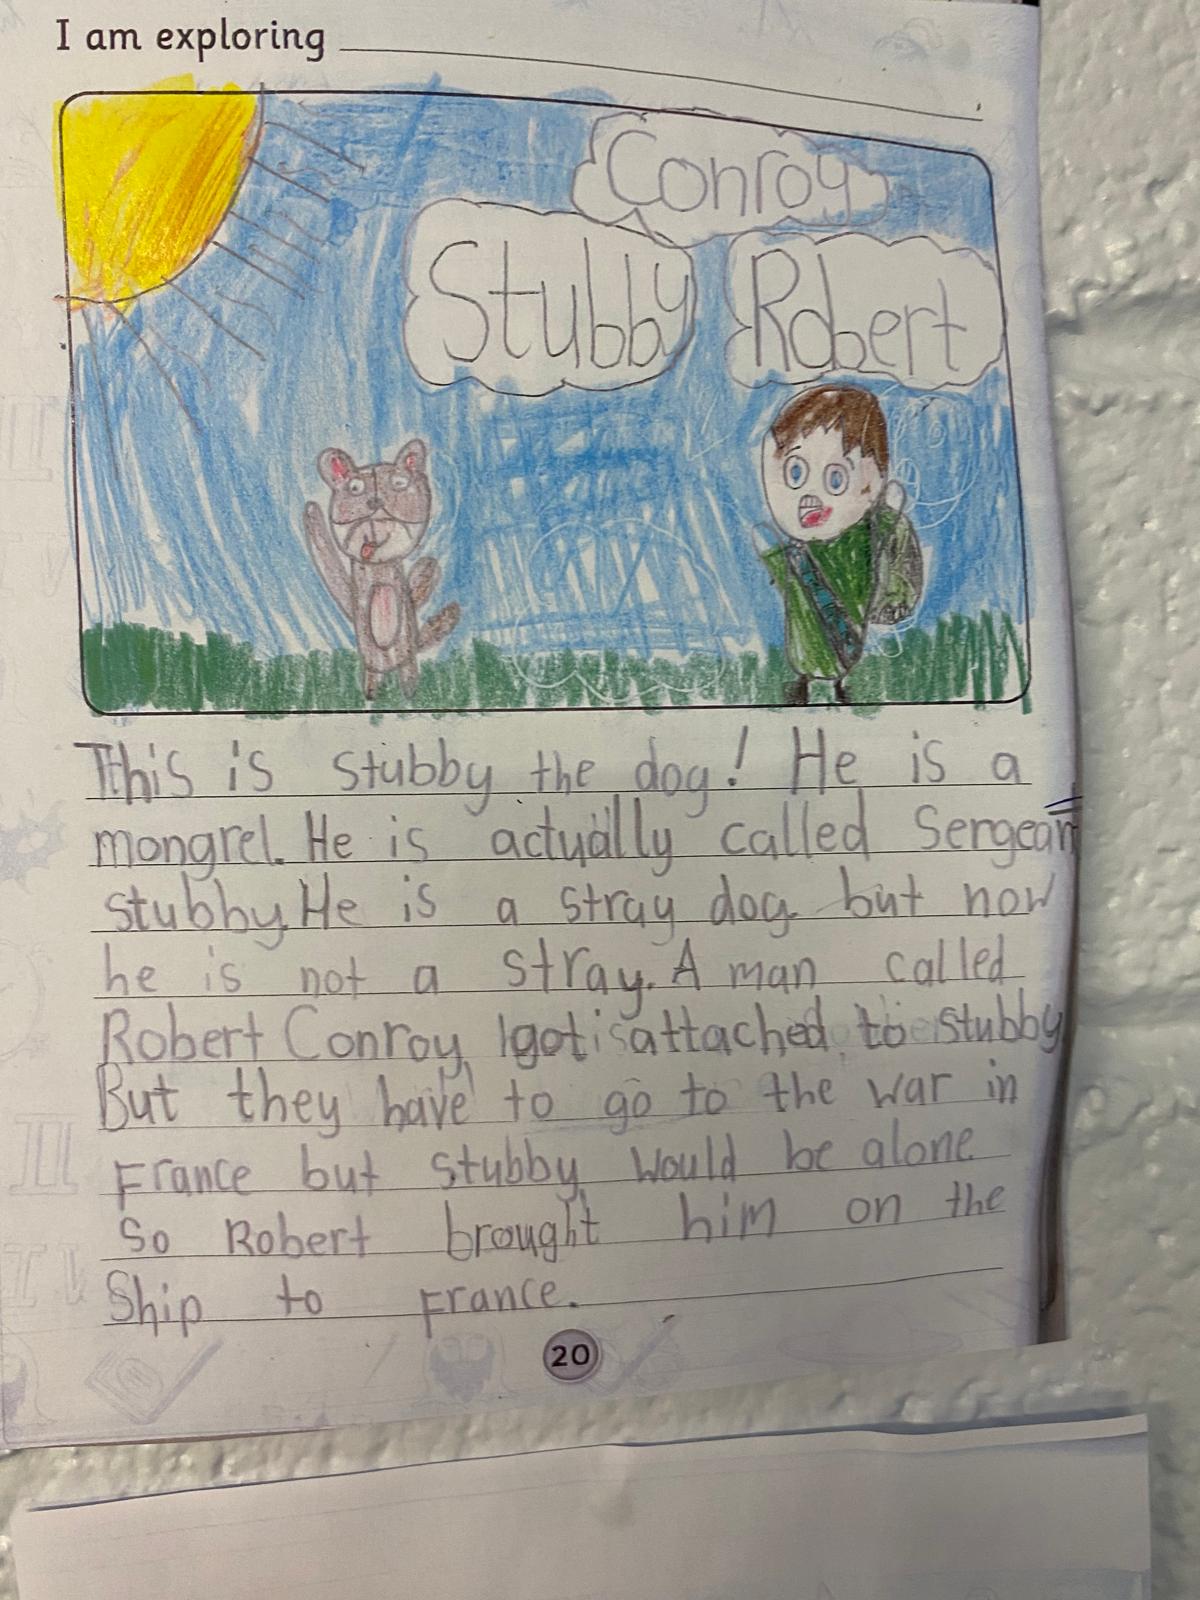 I am exploring
Conroy
Stubby Robert
This is stubby the dog! He is a
mongrel. He is actually called Sergeant
stubby. He is a stray dog but now
he is not a stray. A man called
Robert Conroy got attached to stubby
But they have to go to the war in
France but stubby would be alone
So Robert brought him on the
Ship to France.
20